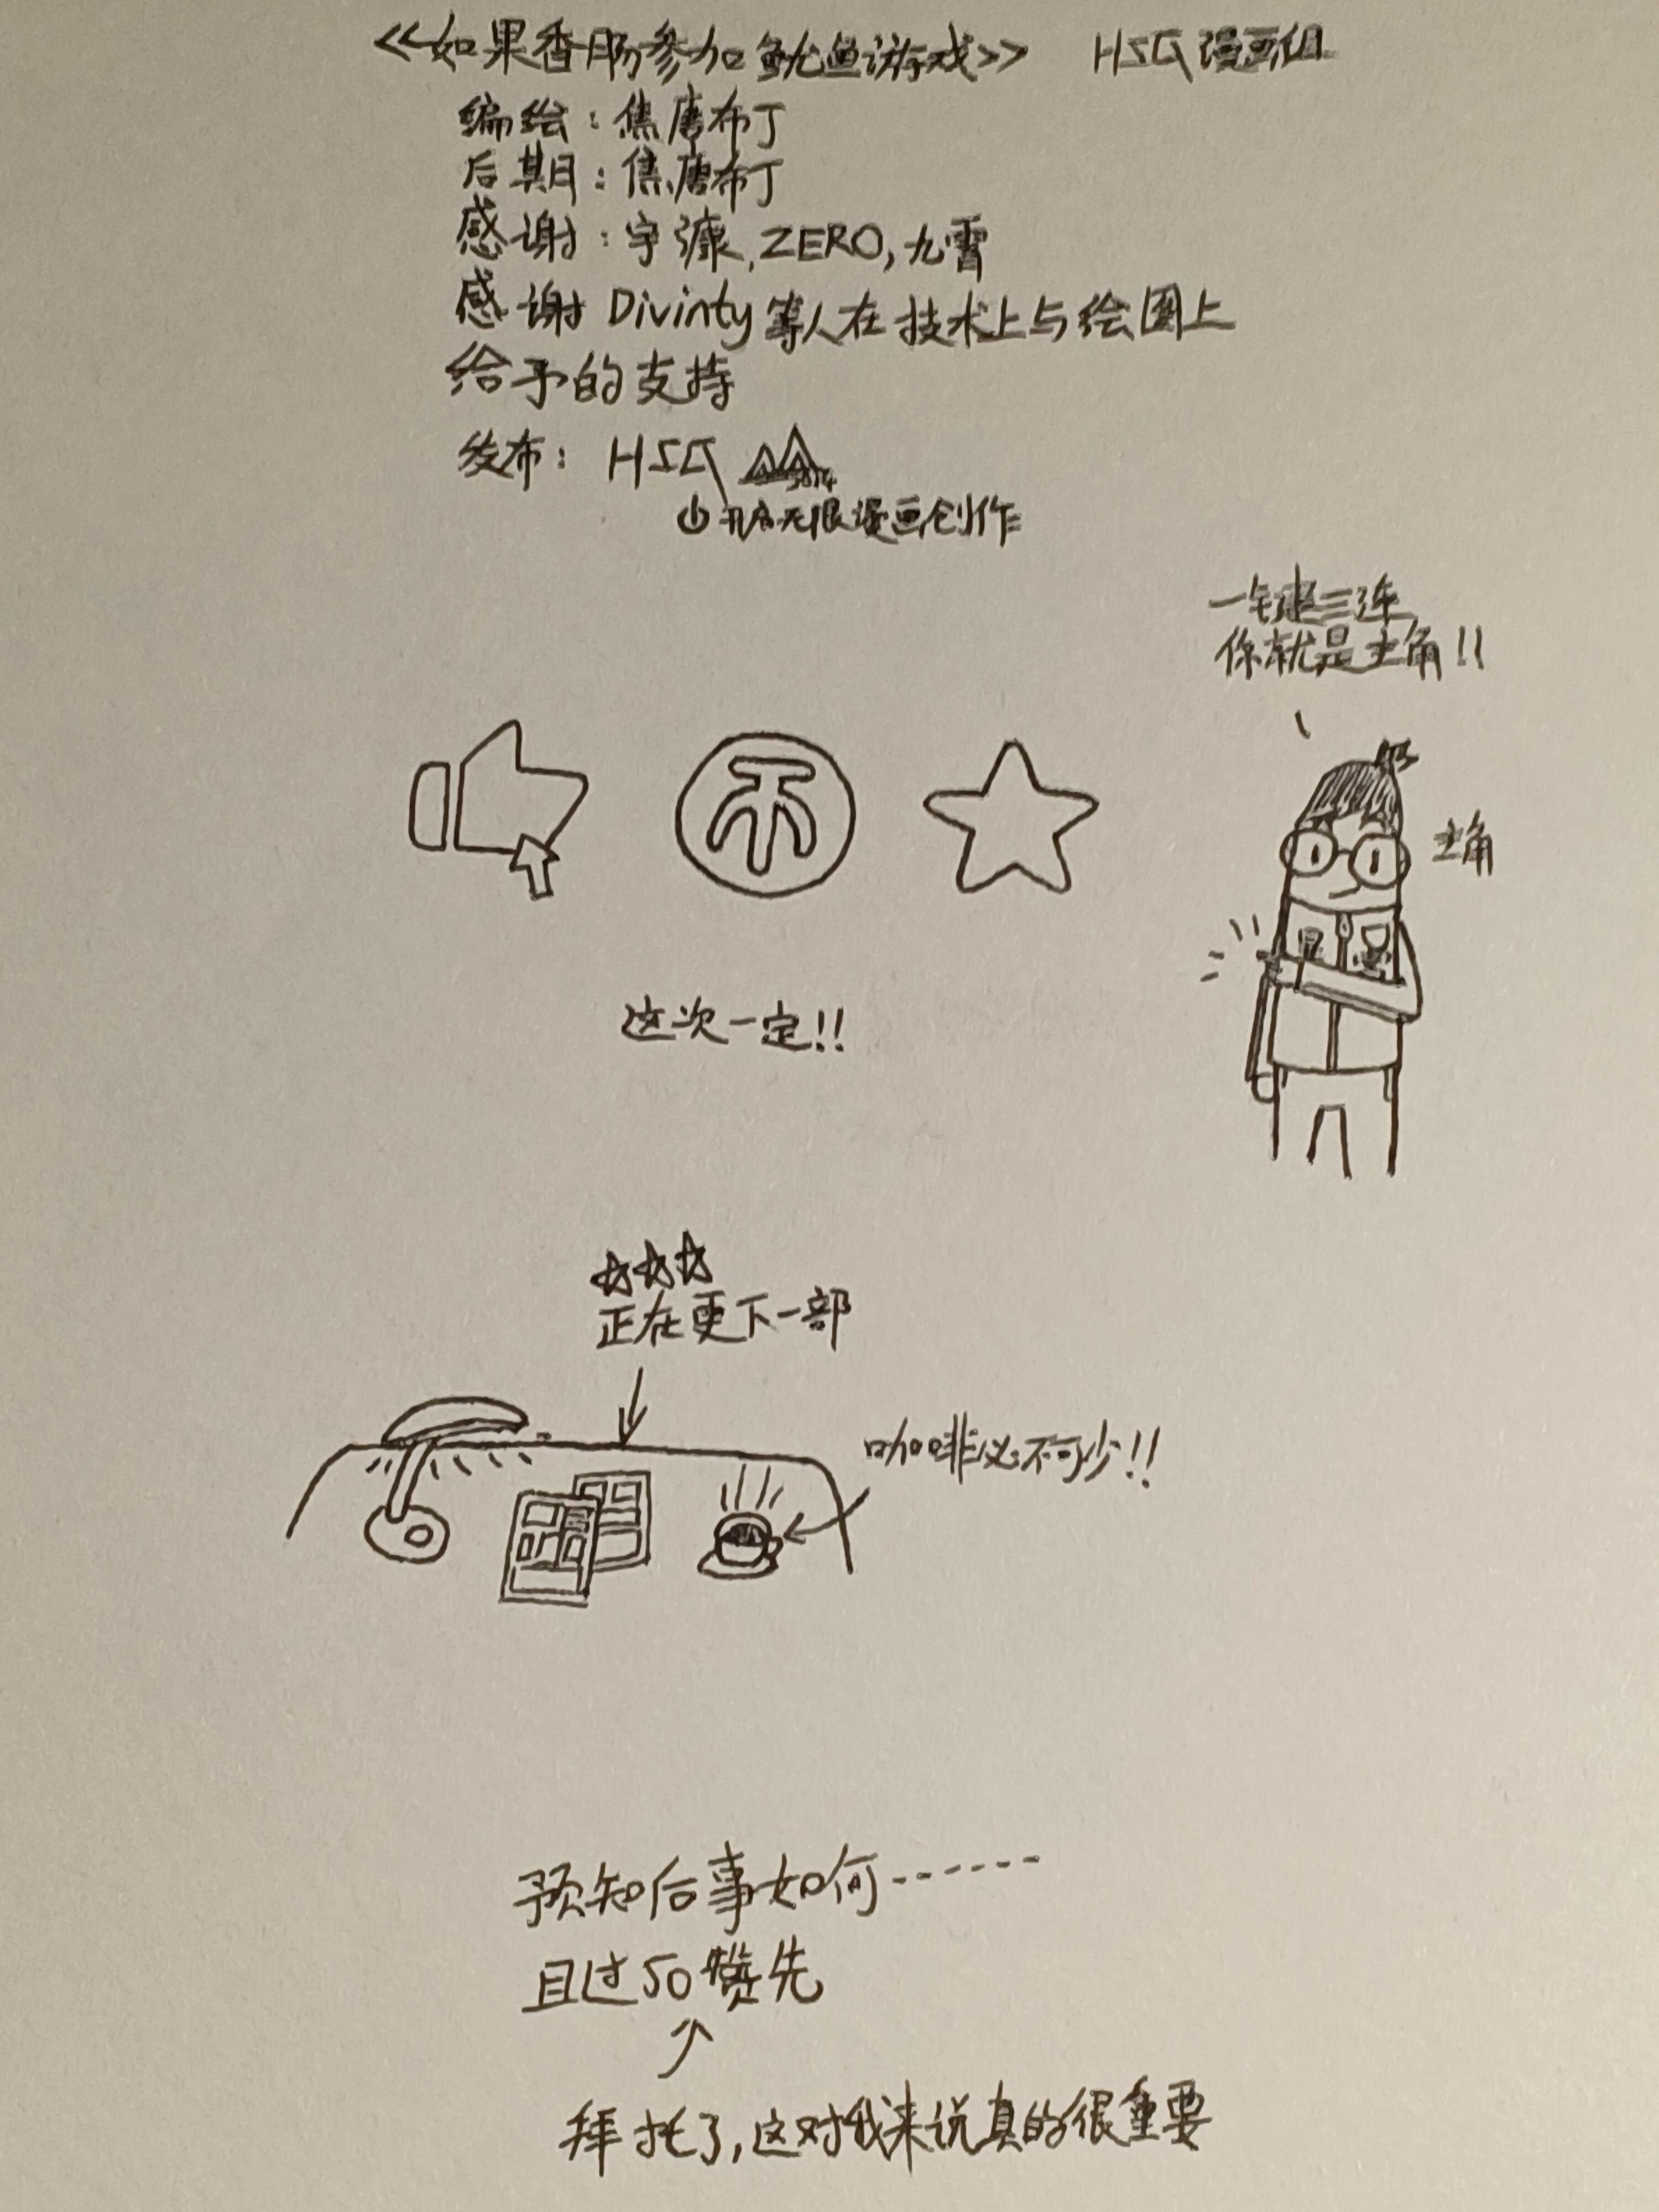 <<如果香肠参加鱿鱼游戏>> HSG漫画组
编绘：焦唐布丁
后期：焦唐布丁
感谢：宇漮,ZERO,九霄
感谢 Divinty等人在技术上与绘图上
给予的支持
发布：HSG
开启无限漫画创作
一键三连,
你就是主角!!
币
主角
这次一定!!
正在更下一部
咖啡必不可少!!
预知后事如何------
且过50赞先
拜托了,这对我来说真的很重要